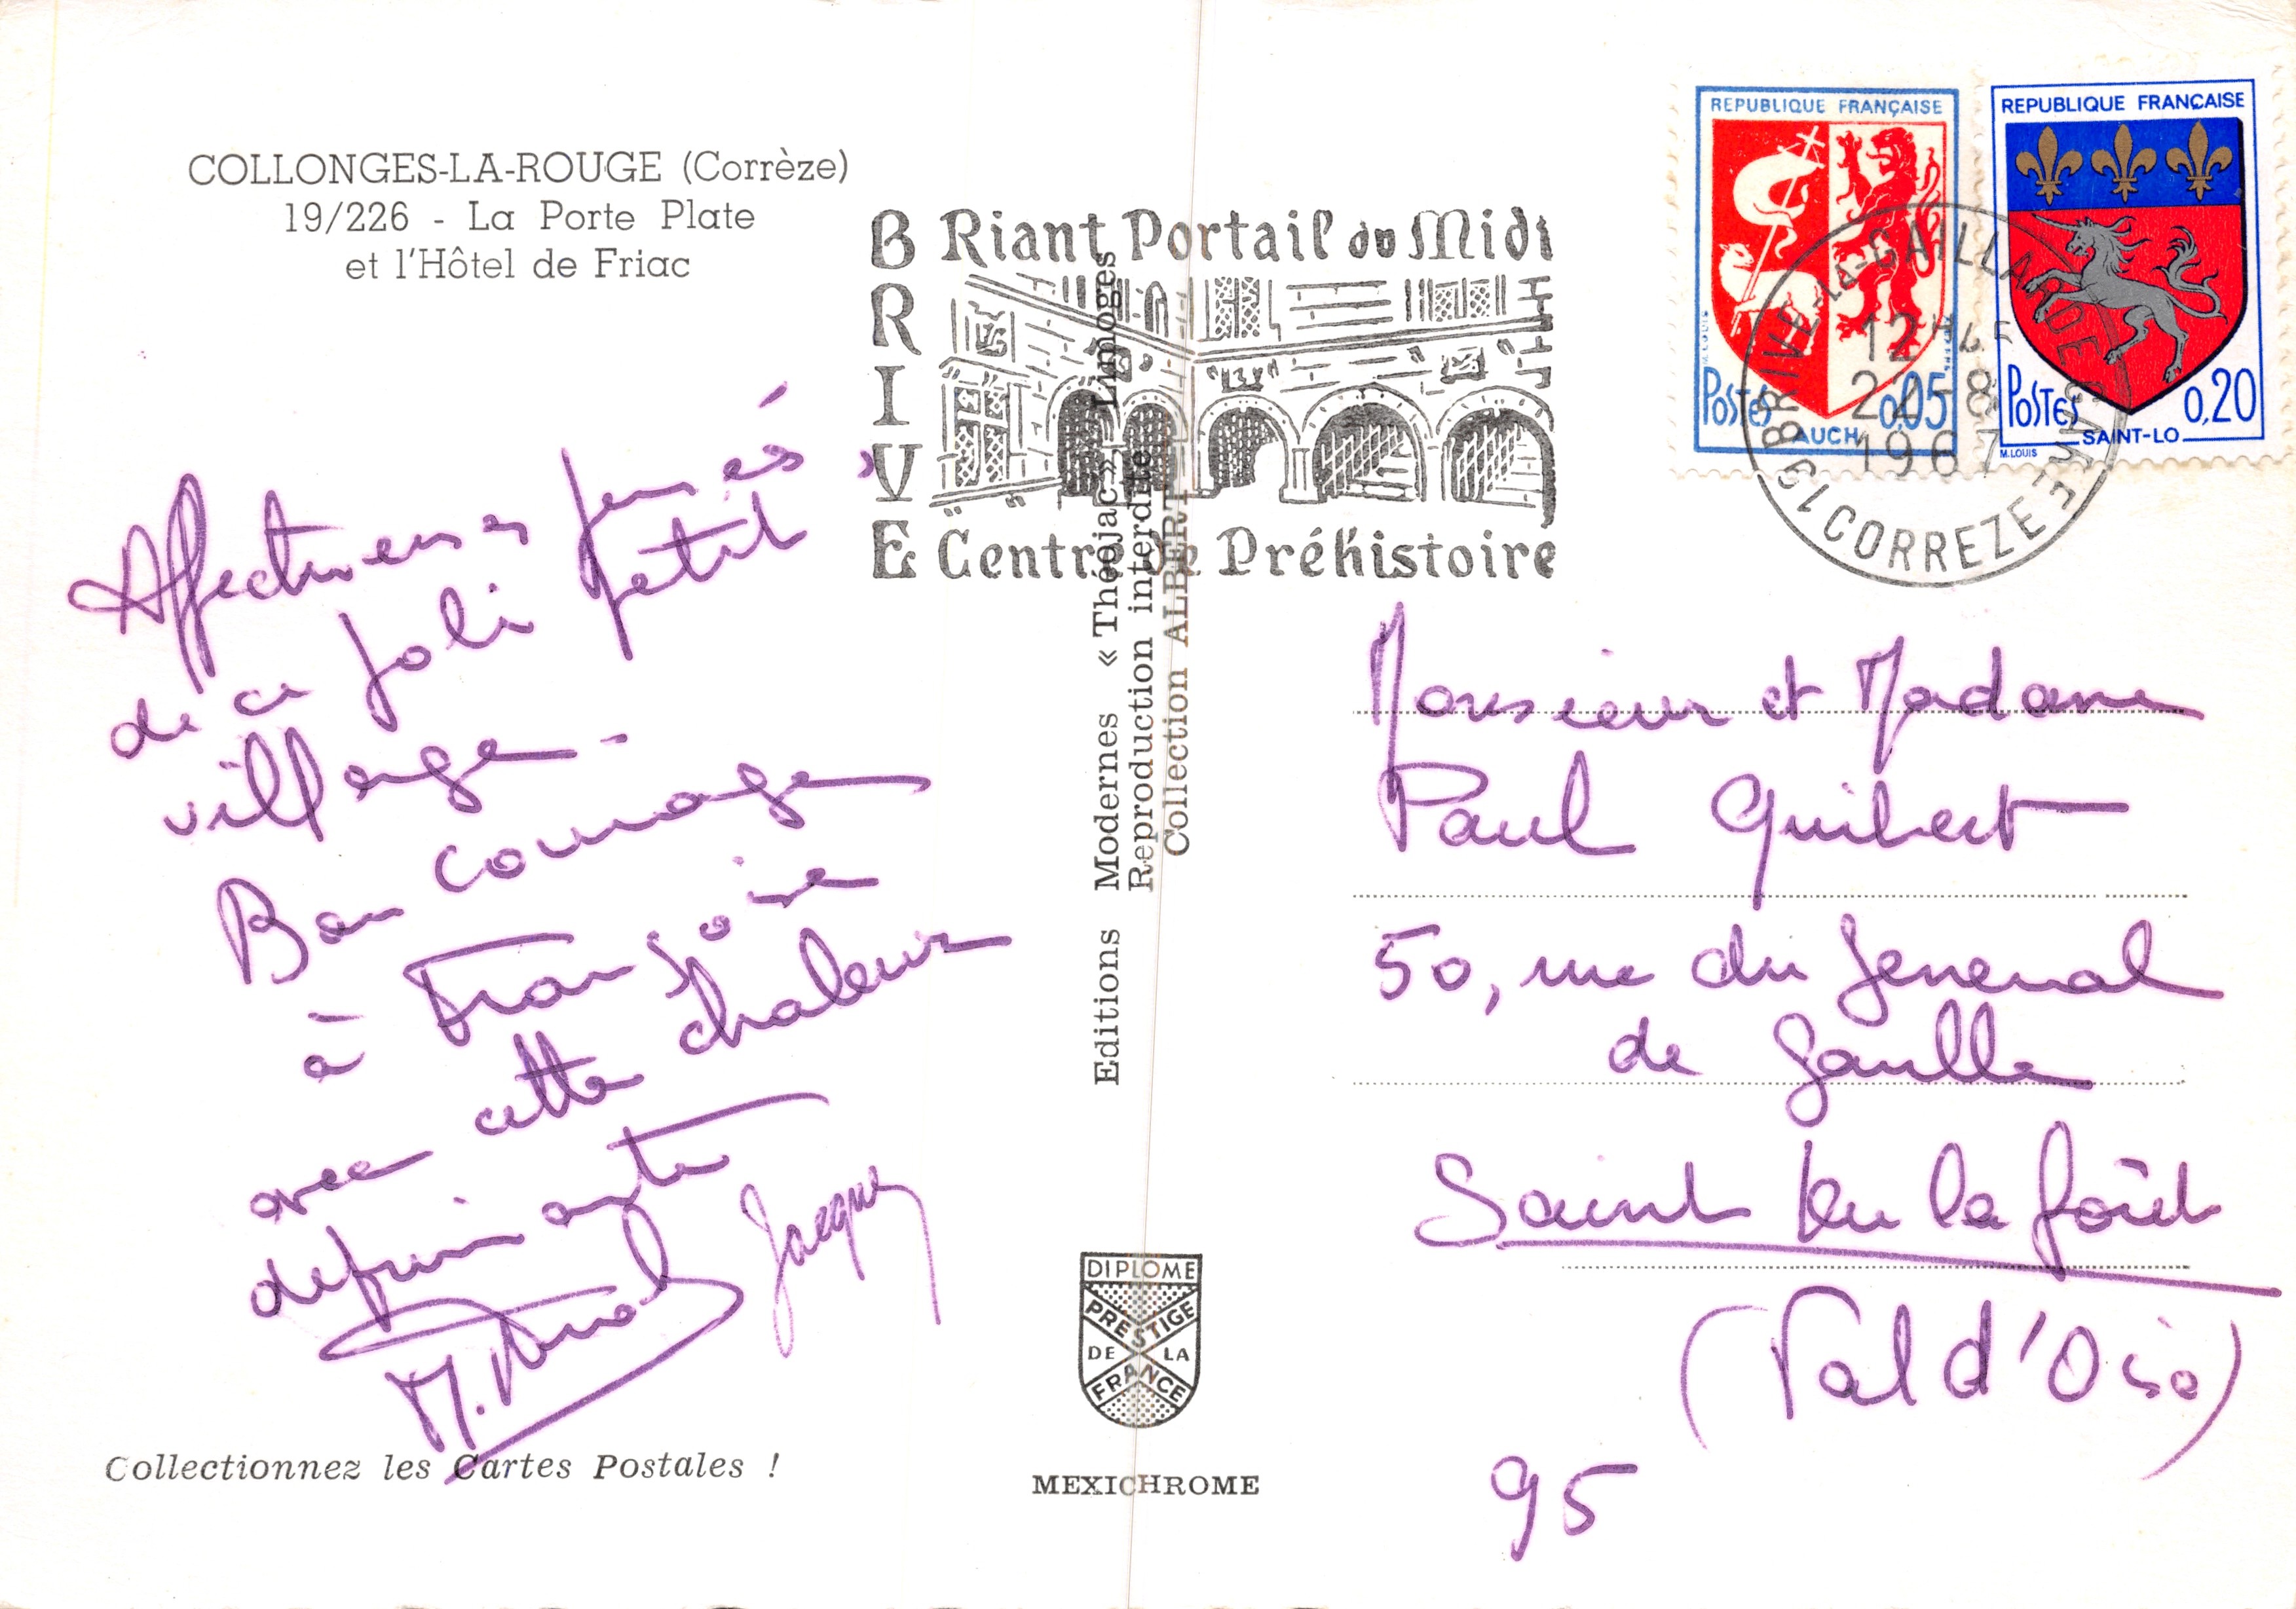 COLLONGES-LA-ROUGE (Corrèze)
19/226 - La Porte Plate
et l'Hôtel de Friac
Affectueuses pensées
de ce joli petit
village -
Bon courage
à Françoise
avec cette chaleur
déprimante
Jacques
M.
Collectionnez les Cartes Postales !
BRIVE
Riant Portail du Midi
Centre de Préhistoire
Editions Modernes « Théojac » Limoges
Reproduction interdite
Collection ALBERT
DIPLOME
PRESTIGE
DE LA
FRANCE
MEXICHROME
REPUBLIQUE FRANÇAISE
POSTES 0,05
AUCH
REPUBLIQUE FRANÇAISE
POSTES 0,20
SAINT-LO
M.LOUIS
19 BRIVE-LA-GAILLARDE GARE
12H45
22-8
1967
CORREZE
Monsieur et Madame
Paul Guibert
50, rue du General
de Gaulle
Saint Leu la forêt
(Val d'Oise)
95